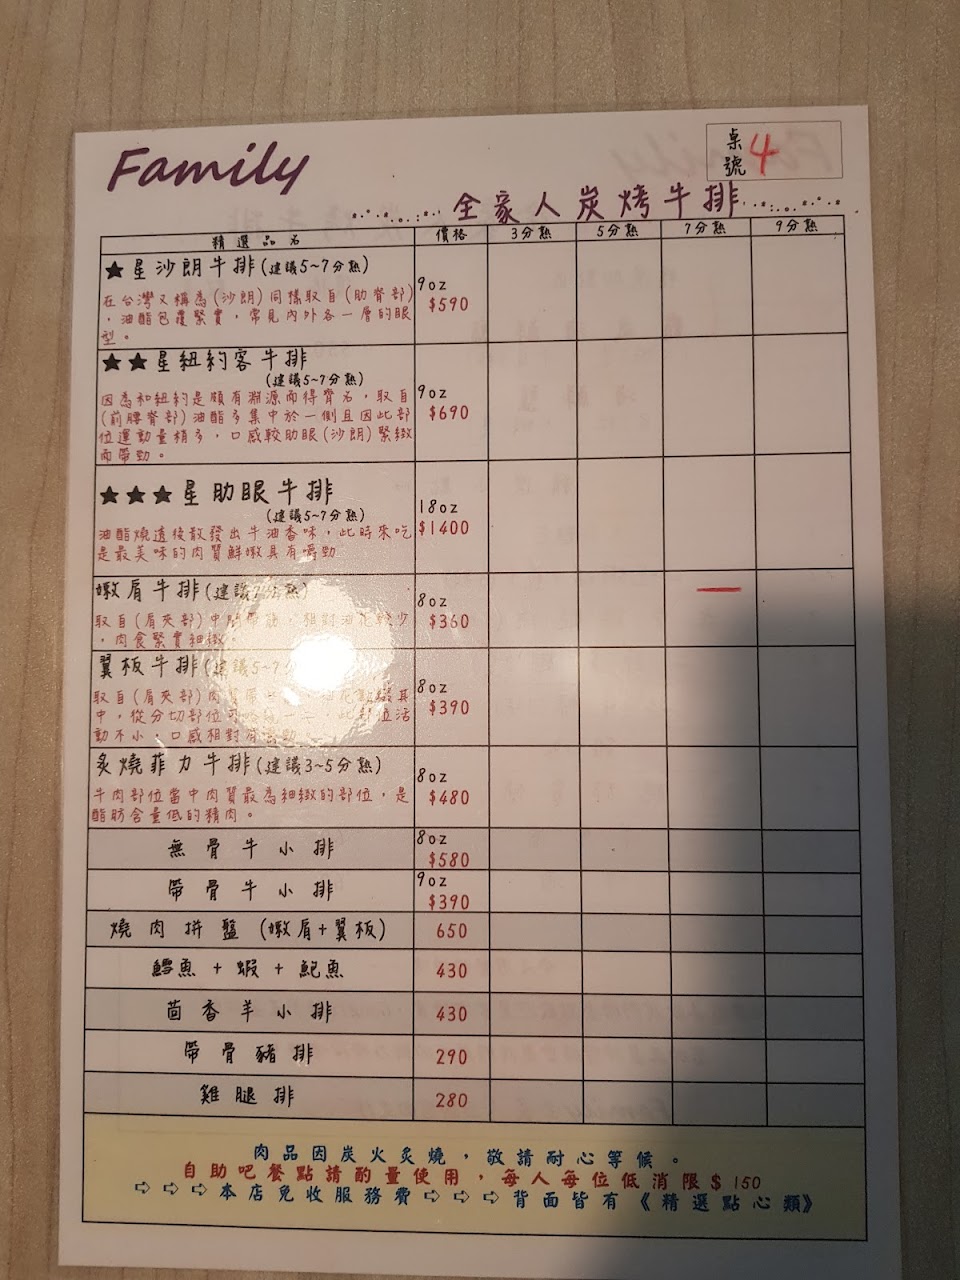 Family
桌號 4
全家人炭烤牛排
精選品名 價格 3分熟 5分熟 7分熟 9分熟
★星沙朗牛排(建議5~7分熟)
9oz
$590
在台灣又稱為(沙朗)同樣取自(肋脊部)
，油酯包覆緊實，常見內外各一層的眼
型。
★★星紐約客牛排
(建議5~7分熟)
9oz
$690
因為和紐約是頗有淵源而得齊名，取自
(前腰脊部)油酯多集中於一側且因此部
位運動量稍多，口感較肋眼(沙朗)緊緻
而帶勁。
★★★星肋眼牛排
(建議5~7分熟)
18oz
$1400
油酯燒透後散發出牛油香味，此時來吃
是最美味的肉質鮮嫩具有嚼勁
嫩肩牛排(建議 分熟)
8oz
$360
取自(肩夾部)中間帶筋，相對油花較少
，肉食緊實細緻。
翼板牛排(建議5~7分
8oz
$390
取自(肩夾部)肉質帶
中，從分切部位 此部位活
動不小，口感相對有
炙燒菲力牛排(建議3~5分熟)
8oz
$480
牛肉部位當中肉質最為細緻的部位，是
酯肪含量低的精肉。
無骨牛小排 8oz $580
帶骨牛小排 9oz $390
燒肉拼盤(嫩肩+翼板) 650
鱈魚+蝦+鮑魚 430
茴香羊小排 430
帶骨豬排 290
雞腿排 280
肉品因炭火炙燒，敬請耐心等候。
自助吧餐點請酌量使用，每人每位低消限$150
⇨⇨⇨本店免收服務費⇨⇨⇨背面皆有《精選點心類》